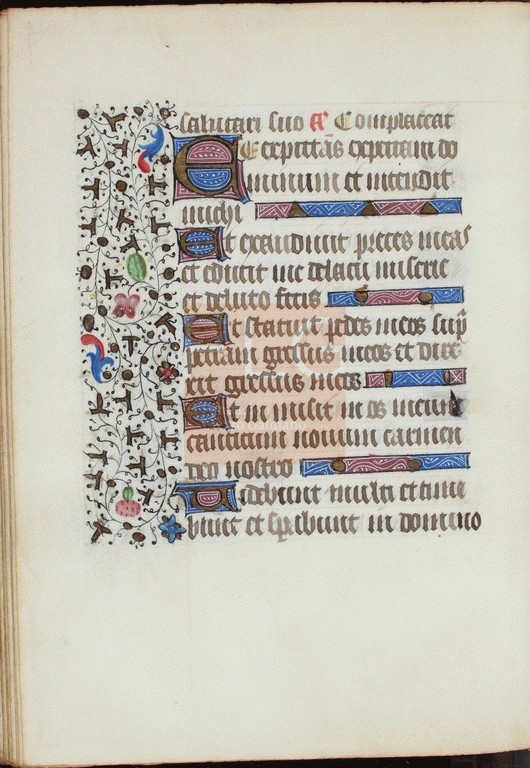 salutari suo añ Complaceat
Expectãs expectaui do
minum et intendit
michi
Et exaudiuit preces meas
et eduxit me de lacu miserie
et de luto fecis
Et statuit pedes meos sup̃
petram gressus meos et dire
xit gressus meos
Et in misit in os meum
canticum nouum carmen
deo nostro
Uidebunt multi et time
bunt et sperabunt in domino